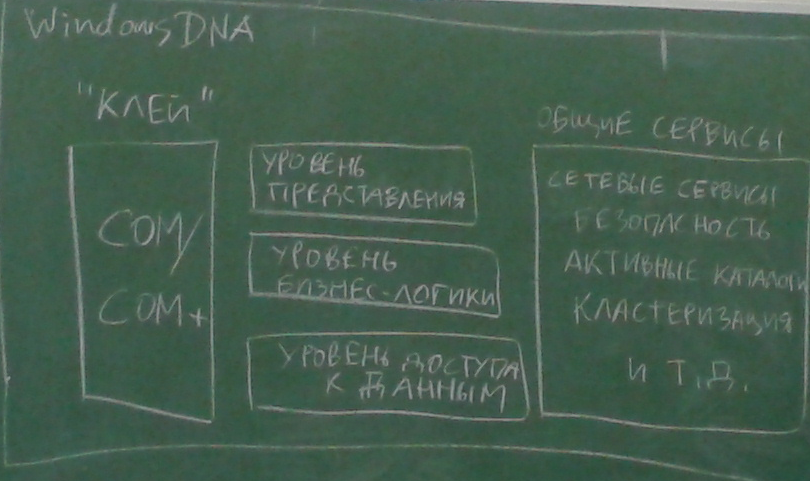 Windows DNA
"КЛЕЙ"
COM/
COM+
УРОВЕНЬ
ПРЕДСТАВЛЕНИЯ
УРОВЕНЬ
БИЗНЕС-ЛОГИКИ
УРОВЕНЬ ДОСТУПА
К ДАННЫМ
ОБЩИЕ СЕРВИСЫ
СЕТЕВЫЕ СЕРВИСЫ
БЕЗОПАСНОСТЬ
АКТИВНЫЕ КАТАЛОГИ
КЛАСТЕРИЗАЦИЯ
И Т.Д.